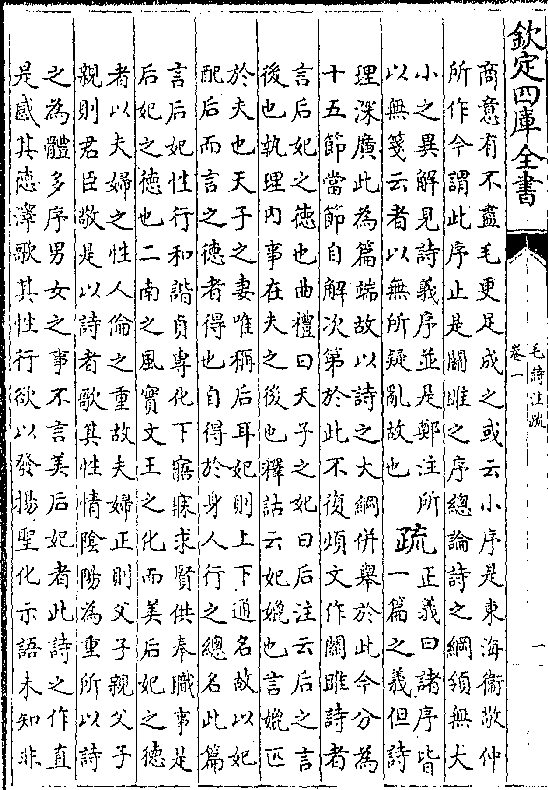 欽定四庫全書
毛詩注疏
卷一
一
商意有不盡毛更足成之或云小序是東海衛敬仲
所作今謂此序止是關雎之序總論詩之綱領無大
小之異解見詩義序並是鄭注所
以無箋云者以無所疑亂故也
疏
正義曰諸序皆
一篇之義但詩
理深廣此為篇端故以詩之大綱併舉於此今分為
十五節當節自解次第於此不復煩文作關雎詩者
言后妃之徳也曲禮曰天子之妃曰后注云后之言
後也執理内事在夫之後也釋詁云妃媲也言媲匹
於夫也天子之妻唯稱后耳妃則上下通名故以妃
配后而言之徳者得也自得於身人行之總名此篇
言后妃性行和諧貞專化下寤寐求賢供奉職事是
后妃之徳也二南之風實文王之化而美后妃之徳
者以夫婦之性人倫之重故夫婦正則父子親父子
親則君臣敬是以詩者歌其性情陰陽為重所以詩
之為體多序男女之事不言美后妃者此詩之作直
是感其徳澤歌其性行欲以發揚聖化示語未知非